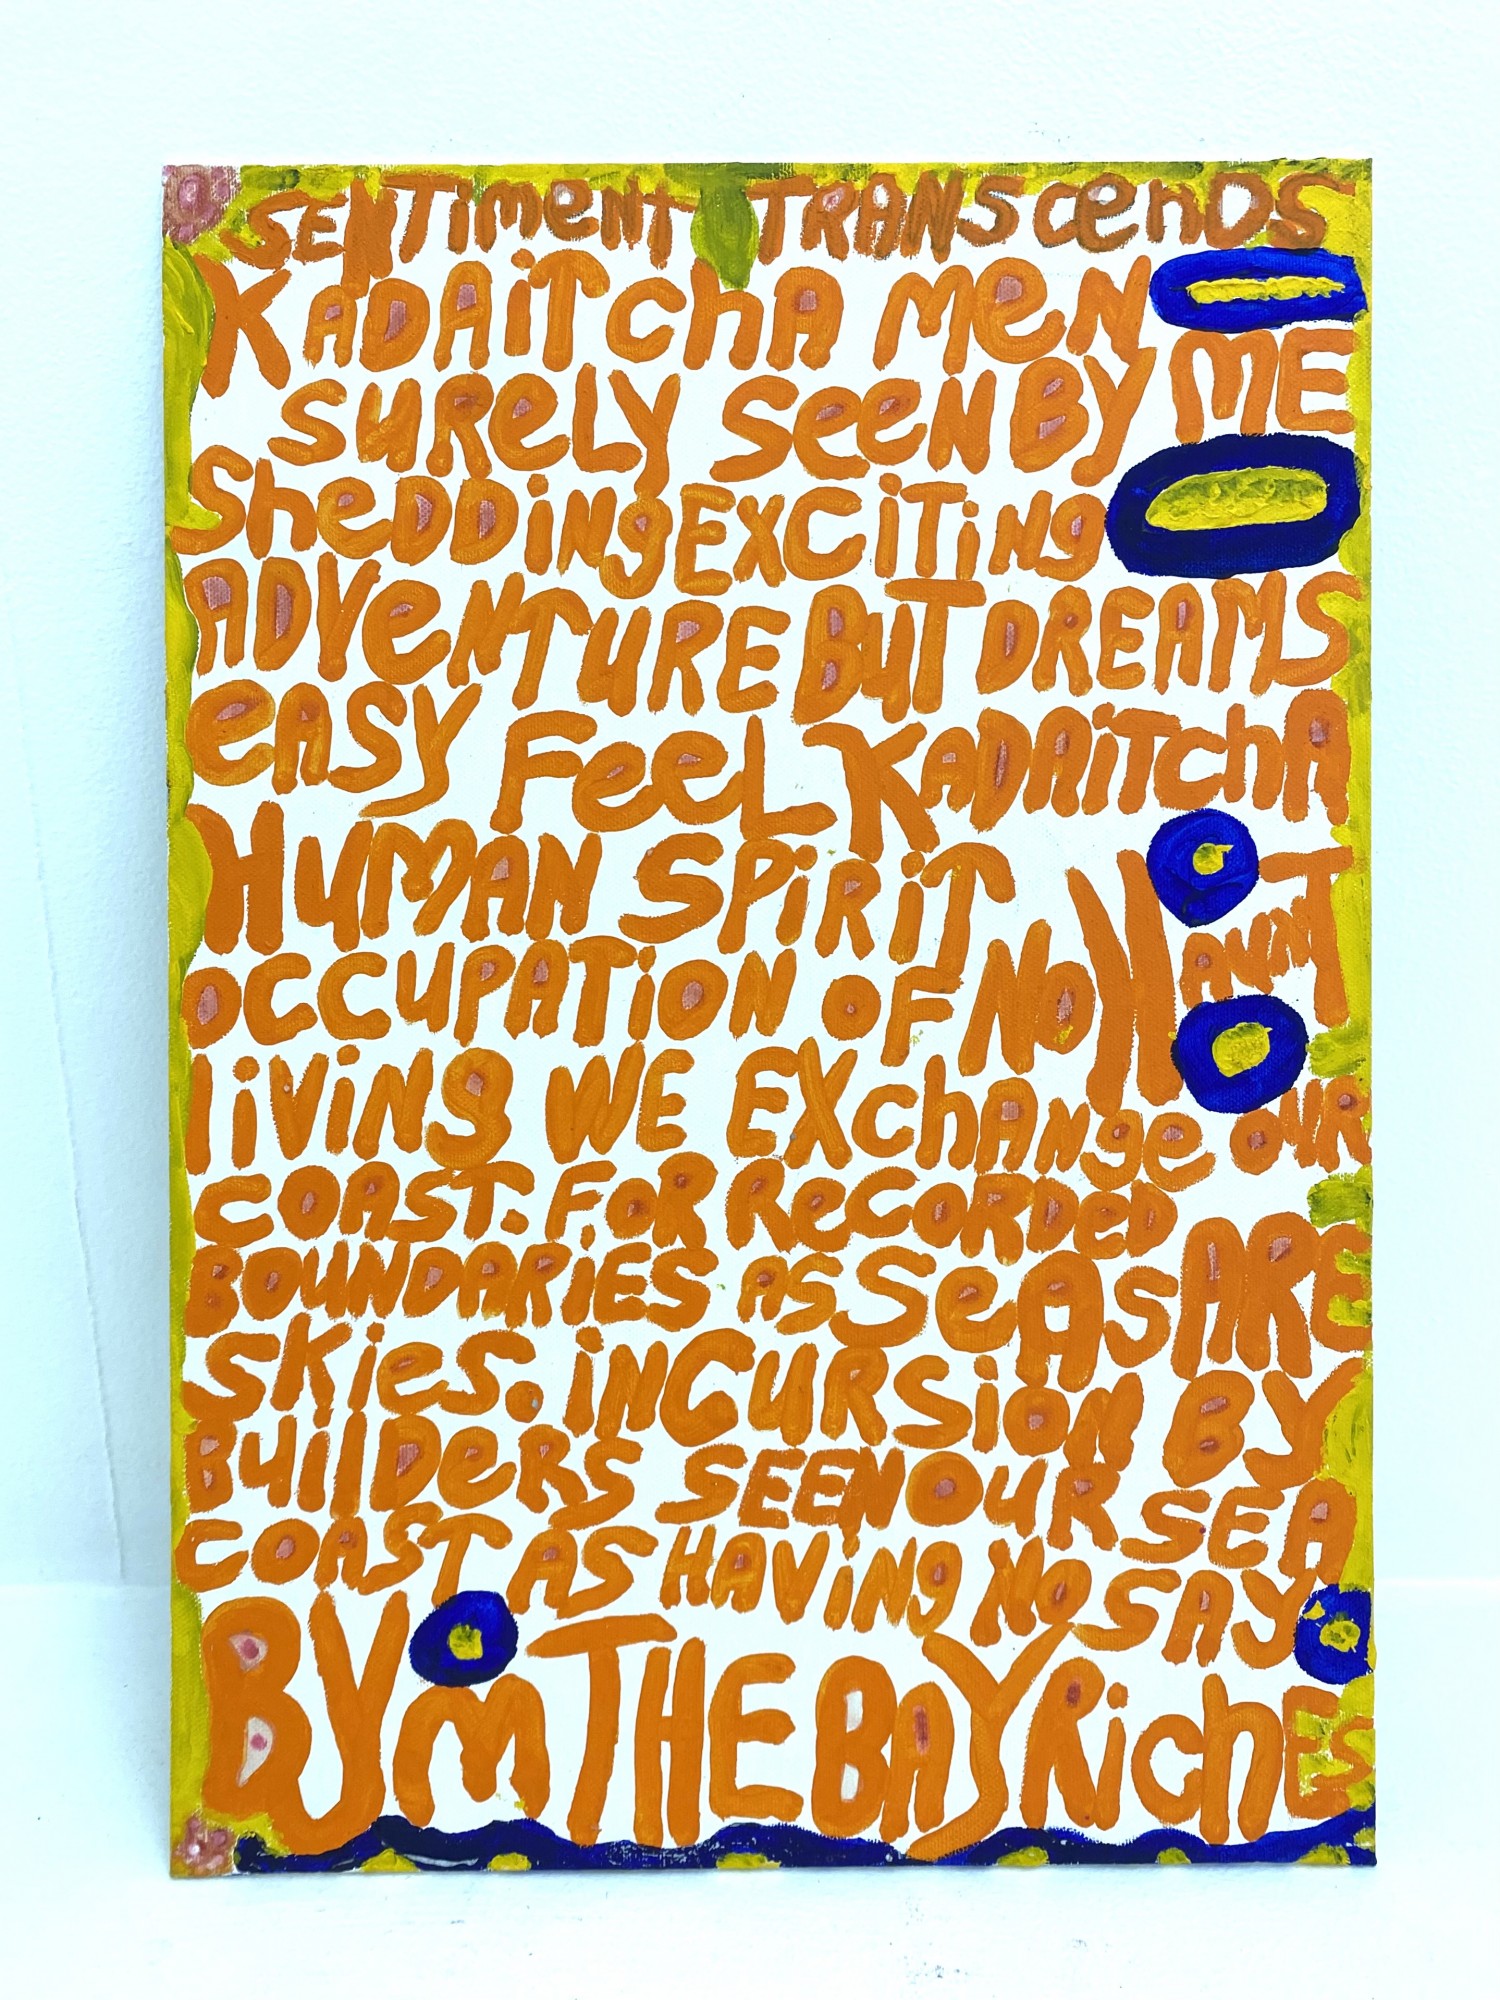 SENTiMeNT TRANScenDS
KADAiTchA MeN
SUReLY SeeN BY ME
SheDDiNg EXCiTiNg
ADVeNTURE BuT DREAMS
eASY FeeL KADAiTchA
HuMAN SPiRiT
OCCUPATiON OF NO HAUNT
liViNg WE EXchANge OUR
COAST. FOR ReCORDeD
BOUNDARiES AS SeAS ARE
SKieS. iNCURSiON BY
BuilDeRS SEEN OUR SEA
COAST AS HAViNg NO SAY
BY M THE BAY RichES